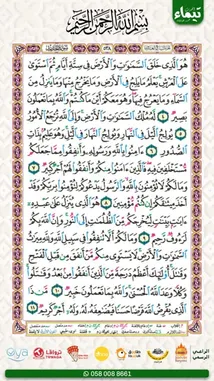 بسم الله الرحمن الرحيم
تيماء
هُوَ الَّذِي خَلَقَ السَّمَوَاتِ وَالْأَرْضَ فِي سِتَّةِ أَيَّامٍ ثُمَّ اسْتَوَى
عَلَى الْعَرْشِ يَعْلَمُ مَا يَلِجُ فِي الْأَرْضِ وَمَا يَخْرُجُ مِنْهَا وَمَا يَنزِلُ مِنَ
السَّمَاءِ وَمَا يَعْرُجُ فِيهَا وَهُوَ مَعَكُمْ أَيْنَ مَا كُنتُمْ وَاللَّهُ بِمَا تَعْمَلُونَ
بَصِيرٌ ٤ لَّهُ مُلْكُ السَّمَوَاتِ وَالْأَرْضِ وَإِلَى اللَّهِ تُرْجَعُ الْأُمُورُ ٥
يُولِجُ اللَّيْلَ فِي النَّهَارِ وَيُولِجُ النَّهَارَ فِي اللَّيْلِ وَهُوَ عَلِيمٌ بِذَاتِ
الصُّدُورِ ٦ آمِنُوا بِاللَّهِ وَرَسُولِهِ وَأَنفِقُوا مِمَّا جَعَلَكُم
مُّسْتَخْلَفِينَ فِيهِ فَالَّذِينَ آمَنُوا مِنكُمْ وَأَنفَقُوا لَهُمْ أَجْرٌ كَبِيرٌ ٧
وَمَا لَكُمْ لَا تُؤْمِنُونَ بِاللَّهِ وَالرَّسُولُ يَدْعُوكُمْ لِتُؤْمِنُوا بِرَبِّكُمْ وَقَدْ
أَخَذَ مِيثَاقَكُمْ إِن كُنتُم مُّؤْمِنِينَ ٨ هُوَ الَّذِي يُنَزِّلُ عَلَى عَبْدِهِ
آيَاتٍ بَيِّنَاتٍ لِّيُخْرِجَكُم مِّنَ الظُّلُمَاتِ إِلَى النُّورِ وَإِنَّ اللَّهَ بِكُمْ
لَرَءُوفٌ رَّحِيمٌ ٩ وَمَا لَكُمْ أَلَّا تُنفِقُوا فِي سَبِيلِ اللَّهِ وَلِلَّهِ مِيرَاثُ
السَّمَوَاتِ وَالْأَرْضِ لَا يَسْتَوِي مِنكُم مَّنْ أَنفَقَ مِن قَبْلِ الْفَتْحِ
وَقَاتَلَ أُولَئِكَ أَعْظَمُ دَرَجَةً مِّنَ الَّذِينَ أَنفَقُوا مِن بَعْدُ وَقَاتَلُوا
وَكُلًّا وَعَدَ اللَّهُ الْحُسْنَى وَاللَّهُ بِمَا تَعْمَلُونَ خَبِيرٌ ١٠ مَّن ذَا
الَّذِي يُقْرِضُ اللَّهَ قَرْضًا حَسَنًا فَيُضَاعِفَهُ لَهُ وَلَهُ أَجْرٌ كَرِيمٌ ١١
الراعي الرسمي
تروقا
TRWAGA
058 008 8661